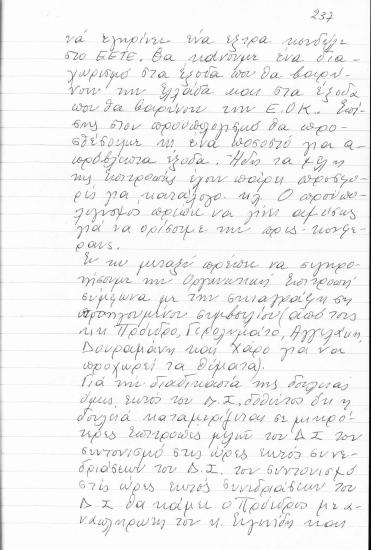 237
νά εγκρίνει ένα έξτρα κονδύλι
στο ΕΕΤΕ. Θα κάνουμε ένα δια-
χωρισμό στα έξοδα που θα βαρύ-
νουν την Ελλάδα και στα έξοδα
που θα βαρύνουν την Ε.Ο.Κ. Επί-
σης στον προϋπολογισμό θα προ-
σθέσουμε και ένα ποσοστό για α-
πρόβλεπτα έξοδα. Ήδη τα μέλη
της Επιτροπής έχουν πάρει προσφο-
ρές για κατάλογο κ.λ. Ο προϋπο-
λογισμός πρέπει να γίνει αμέσως
γιά να ορίσουμε την πρες-κονφε-
ρανς.
Εν τω μεταξύ πρέπει να συγκρο-
τήσουμε την Οργανωτική Επιτροπή
σύμφωνα με την σκιαγράφηση
προηγουμένου συμβουλίου (από τους
κ.κ. Πρόεδρο, Γερολυμάτο, Αγγελάκη,
Δουραμάνη και Χάρο για να
προχωρεί τα θέματα).
Γιά την διαδικασία της δουλειάς
όμως εκτός του Δ.Σ. δοθέντος ότι η
δουλειά καταμερίζεται σε μικρό-
τερες Επιτροπές μελών του Δ.Σ τον
συντονισμό στις ώρες εκτός συνε-
δριάσεων του Δ.Σ. τον συντονισμό
στις ώρες εκτός συνεδριάσεων του
Δ.Σ θα κάμει ο Πρόεδρος με α-
ναπλήρωτη τον κ. και